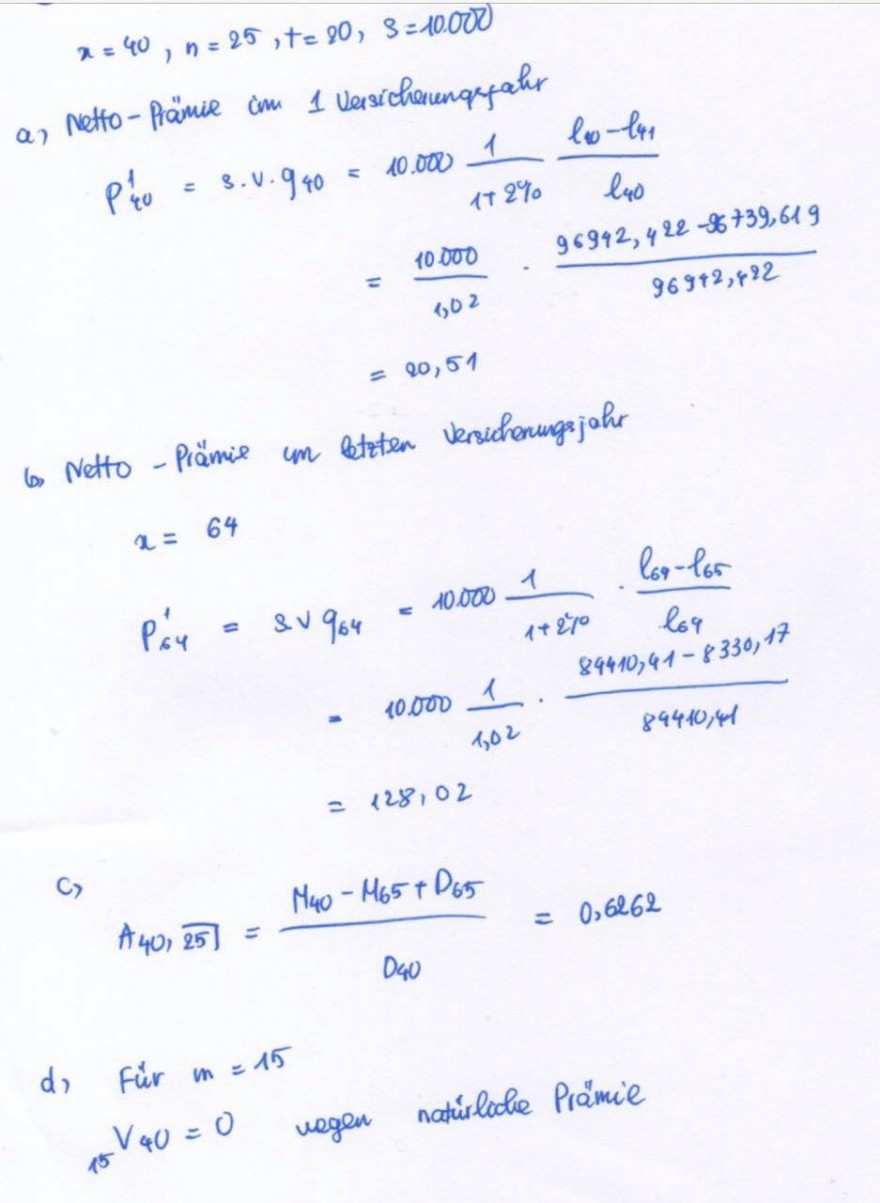 x = 40, n = 25, t = 20, S = 10.000
a) Netto-Prämie im 1 Versicherungsjahr
P¹40 = s.v.q40 = 10.000 1/(1+2%) (l40-l41)/l40
= 10.000/1,02 · (96942,422-96739,619)/96942,422
= 20,51
b) Netto-Prämie im letzten Versicherungsjahr
x = 64
P¹64 = s.v q64 = 10.000 1/(1+2%) · (l64-l65)/l64
= 10.000 1/1,02 · (89410,41-8330,17)/89410,41
= 128,02
c)
A40,25⌉ = (M40-M65+D65)/D40 = 0,6262
d) Für m = 15
15V40 = 0 wegen natürliche Prämie